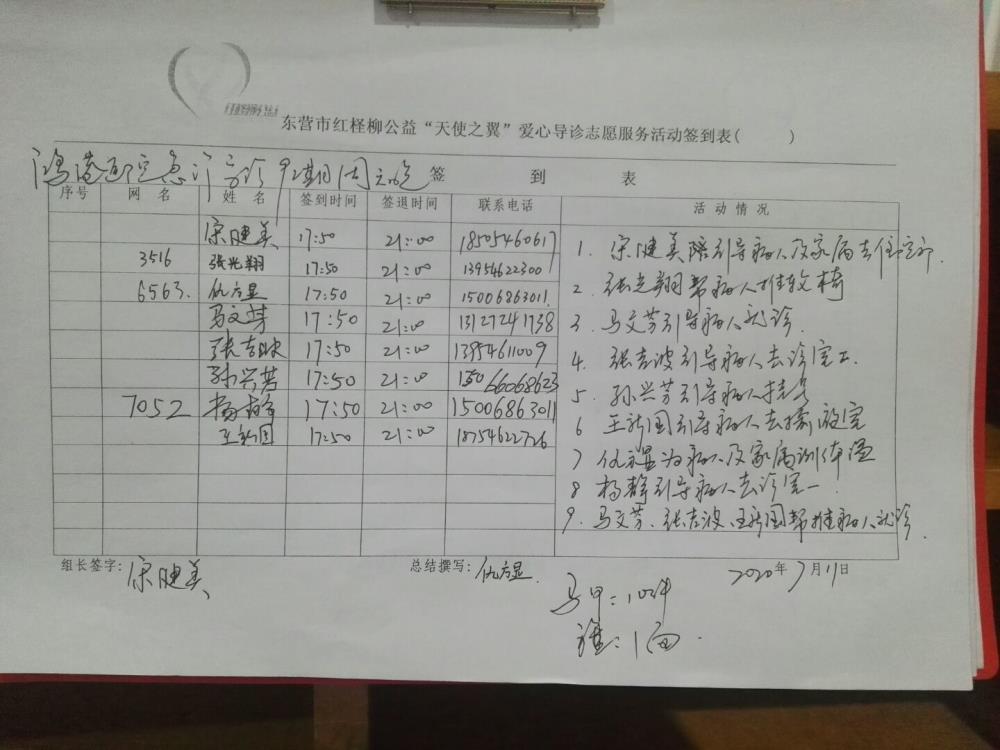 东营市红柽柳公益“天使之翼”爱心导诊志愿服务活动签到表( )
签 到 表
序号 网 名 姓 名 签到时间 签退时间 联系电话 活 动 情 况
宋健美 17:50 21:00 18505460617
3516 张光翔 17:50 21:00 13954622300
6563. 仇方显 17:50 21:00 15006863011
马文芳 17:50 21:00 13127241738
张吉波 17:50 21:00 13954611009
孙兴芳 17:50 21:00 15066068623
7052 杨静 17:50 21:00 15006863011
王新国 17:50 21:00 18754622726
1. 宋健美陪引导病人及家属去住院部
2. 张光翔帮病人推轮椅
3. 马文芳引导病人就诊.
4. 张吉波引导病人去诊室二.
5. 孙兴芳引导病人挂号
6 王新国引导病人去输液室
7 仇方显为病人及家属测体温
8 杨静引导病人去诊室一
9. 马文芳、张吉波、王新国帮推病人就诊
组长签字: 宋健美 总结撰写: 仇方显. 2020年7月11日
马甲:10件
旗:1面.